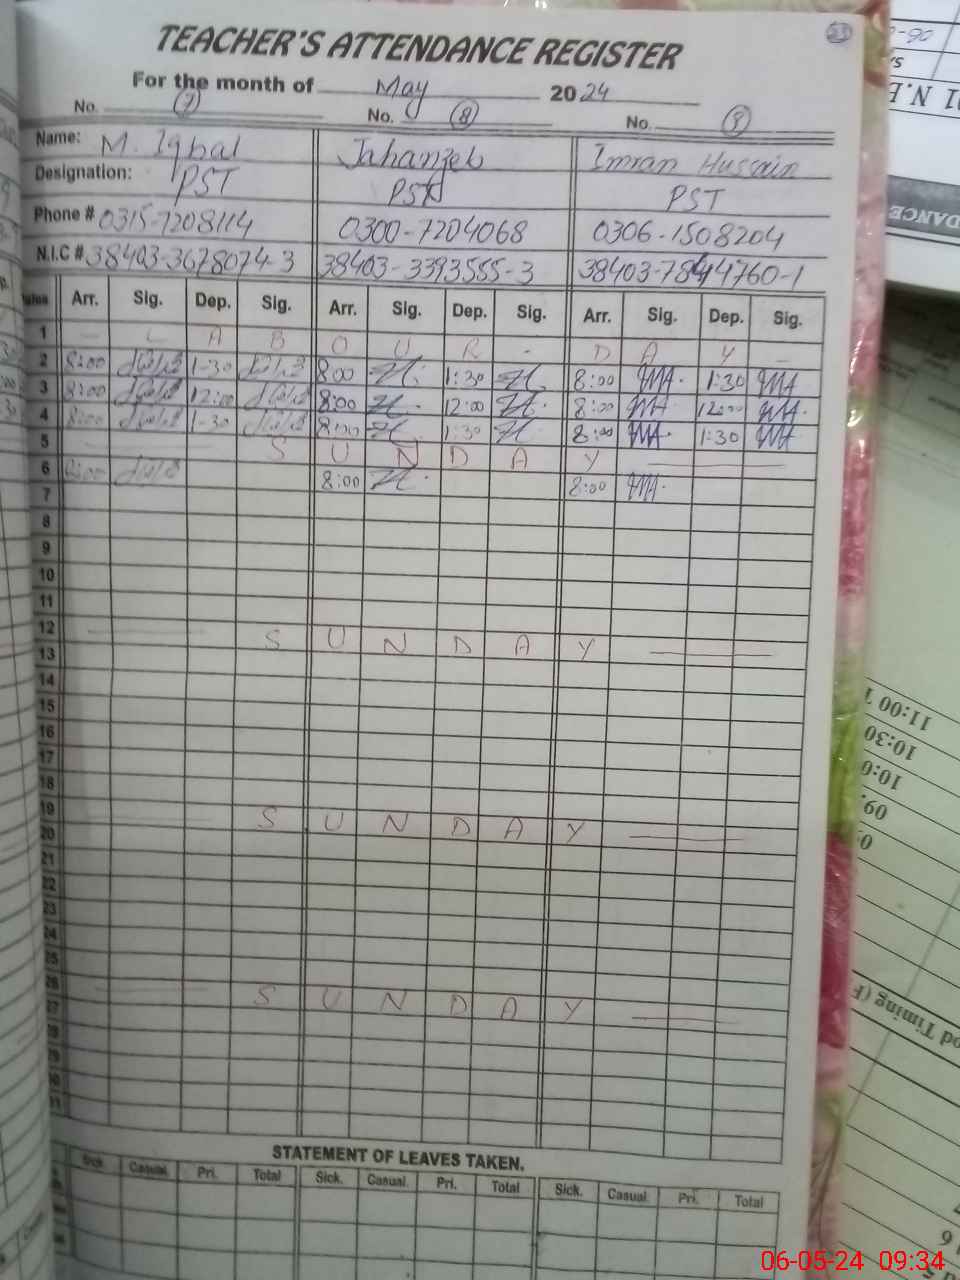 23
TEACHER'S ATTENDANCE REGISTER
For the month of May 2024
No. (7) No. (8) No. (9)
Name: M. Iqbal Jahanzeb Imran Hussain
Designation: PST PST PST
Phone # 0315-7208114 0300-7204068 0306-1508204
N.I.C # 38403-3678074-3 38403-3393555-3
Arr. Sig. Dep. Sig. Arr. Sig. Dep. Sig. Arr. Sig. Dep. Sig.
1 L A B O U R - D A Y
2 8:00 1-30 8:00 1:30 8:00 1:30
3 8:00 12:00 8:00 12:00 8:00 12:00
4 8:00 1-30 8:00 1:30 8:00 1:30
5 S U N D A Y
6 8:00 8:00 8:00
7
8
9
10
11
12 S U N D A Y
13
14
15
16
17
18
19 S U N D A Y
20
21
22
23
24
25
26 S U N D A Y
27
STATEMENT OF LEAVES TAKEN.
Sick. Casual Pri. Total Sick. Casual. Pri. Total Sick. Casual Pri. Total
11:00
10:30
06-05-24 09:34